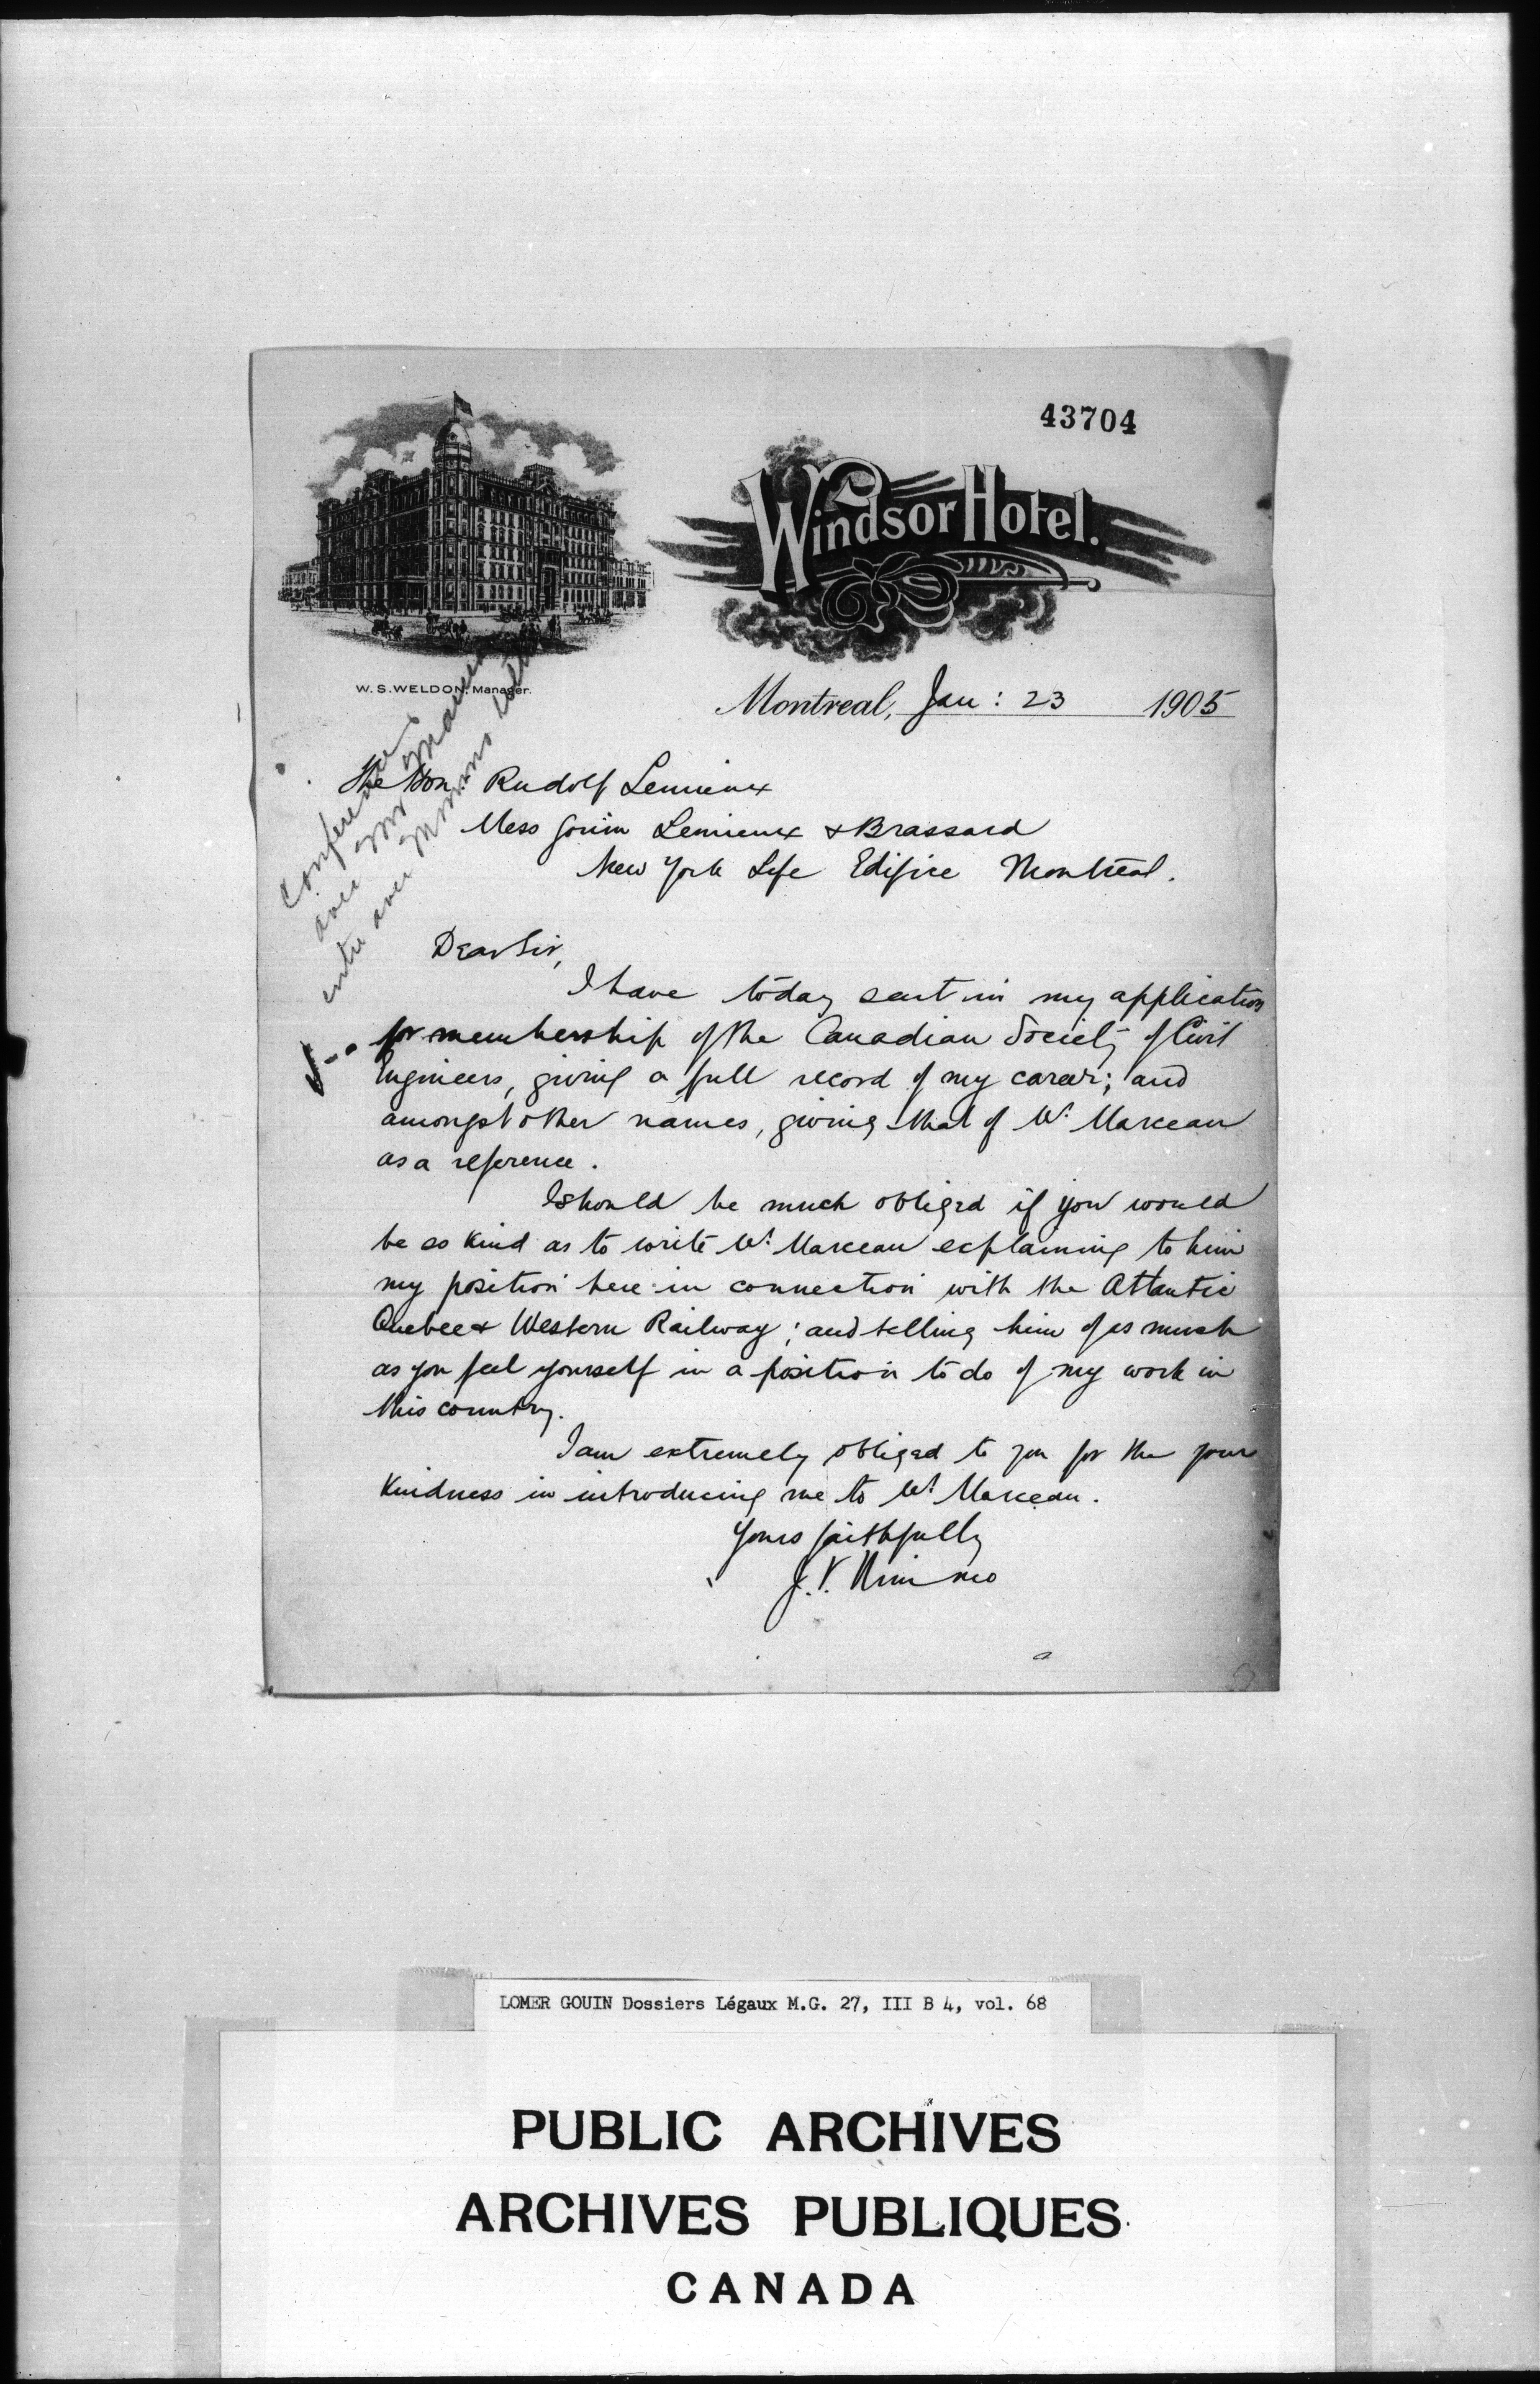 43704
Windsor Hotel.
W. S. WELDON, Manager.
Montreal, Jan: 23 1905
Conference
avec Mr Marceau
entre avec
The Hon. Rudolf Lemieux
Mess Gouin Lemieux & Brassard
New York Life Edifice Montreal.
Dear Sir,
I have today sent in my application
for membership of the Canadian Society of Civil
Engineers, giving a full record of my career; and
amongst other names, giving that of Mr. Marceau
as a reference.
I should be much obliged if you would
be so kind as to write Mr. Marceau explaining to him
my position here in connection with the Atlantic
Quebec & Western Railway; and telling him of as much
as you feel yourself in a position to do of my work in
this country.
I am extremely obliged to you for the your
kindness in introducing me to Mr. Marceau.
Yours faithfully
J. V. Nimmo
LOMER GOUIN Dossiers Légaux M.G. 27, III B 4, vol. 68
PUBLIC ARCHIVES
ARCHIVES PUBLIQUES
CANADA